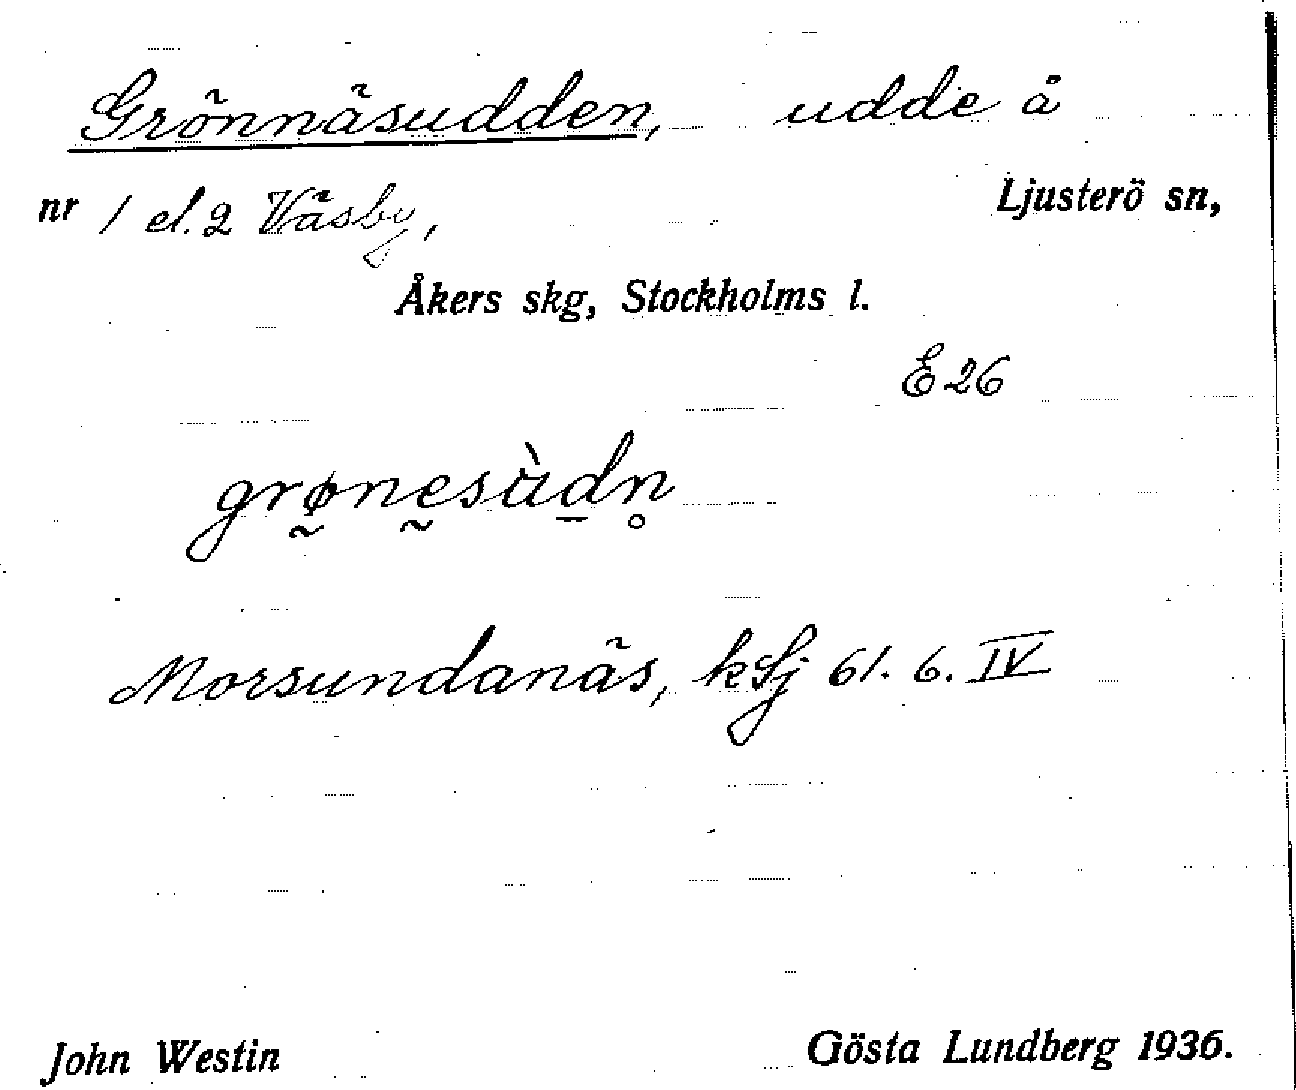 Grönnäsudden, udde å
nr 1 el. 2 Väsby, Ljusterö sn,
Åkers skg, Stockholms l.
E 26
grø̰nḛsùd̠n̥
Morsundanäs, kSj 61. 6. IV
John Westin Gösta Lundberg 1936.